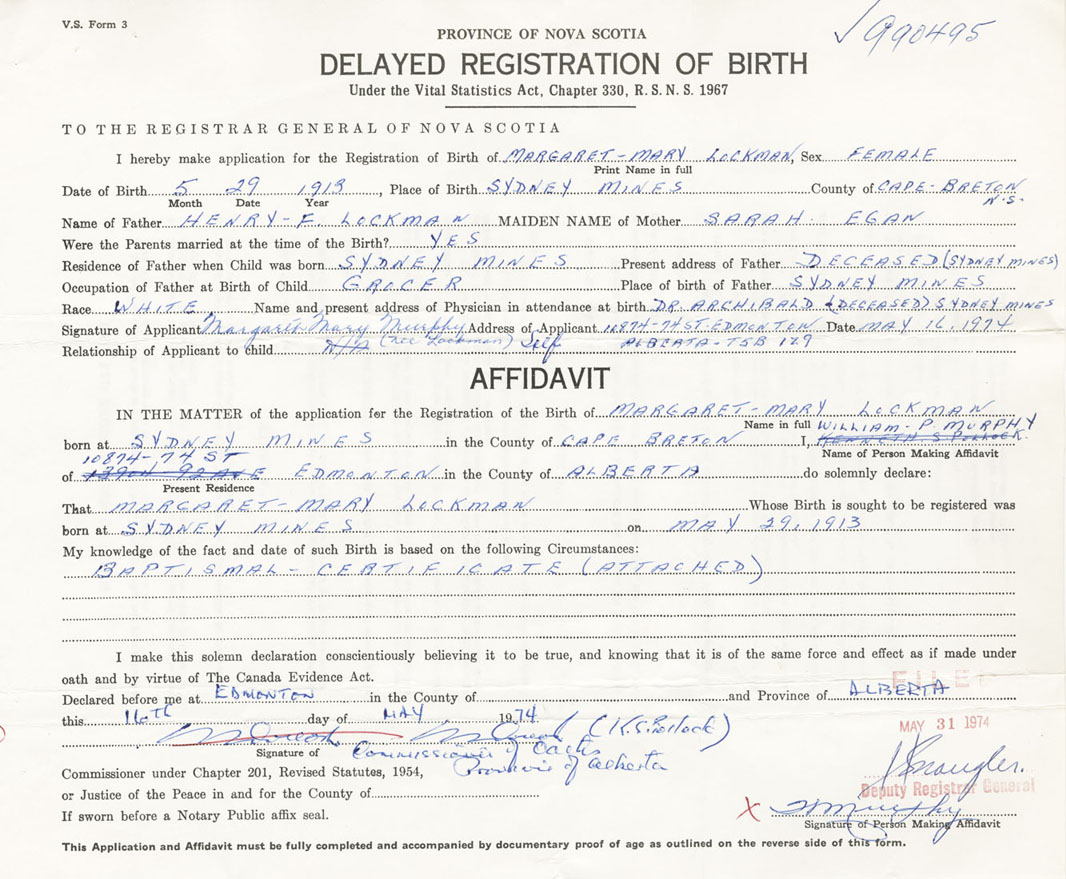 V.S. Form 3
990495
PROVINCE OF NOVA SCOTIA
DELAYED REGISTRATION OF BIRTH
Under the Vital Statistics Act, Chapter 330, R.S.N.S. 1967
TO THE REGISTRAR GENERAL OF NOVA SCOTIA
I hereby make application for the Registration of Birth of MARGARET-MARY LOCKMAN, Sex FEMALE
Print Name in full
Date of Birth 5 29 1913, Place of Birth SYDNEY MINES County of CAPE-BRETON
Month Date Year N.S.
Name of Father HENRY-F. LOCKMAN MAIDEN NAME of Mother SARAH EGAN
Were the Parents married at the time of the Birth? YES
Residence of Father when Child was born SYDNEY MINES Present address of Father DECEASED (SYDNEY MINES)
Occupation of Father at Birth of Child GROCER Place of birth of Father SYDNEY MINES
Race WHITE Name and present address of Physician in attendance at birth DR. ARCHIBALD (DECEASED) SYDNEY MINES
Signature of Applicant Margaret Mary Murphy Address of Applicant 10874-74 ST. EDMONTON Date MAY 16, 1974
Relationship of Applicant to child N/A (nee Lockman) Self ALBERTA-T5B 1Z9
AFFIDAVIT
IN THE MATTER of the application for the Registration of the Birth of MARGARET-MARY LOCKMAN
Name in full WILLIAM-P. MURPHY
born at SYDNEY MINES in the County of CAPE BRETON I, KENNETH S POLLOCK
10874-74 ST Name of Person Making Affidavit
of EDMONTON in the County of ALBERTA do solemnly declare:
Present Residence
That MARGARET-MARY LOCKMAN Whose Birth is sought to be registered was
born at SYDNEY MINES on MAY 29, 1913
My knowledge of the fact and date of such Birth is based on the following Circumstances:
BAPTISMAL-CERTIFICATE (ATTACHED)
I make this solemn declaration conscientiously believing it to be true, and knowing that it is of the same force and effect as if made under
oath and by virtue of The Canada Evidence Act.
FILED
Declared before me at EDMONTON in the County of and Province of ALBERTA
this 16th day of MAY 1974
MAY 31 1974
(K.S. Pollock)
Signature of Commissioner of Oaths
Commissioner under Chapter 201, Revised Statutes, 1954, Province of Alberta
Deputy Registrar General
or Justice of the Peace in and for the County of
X W Murphy
If sworn before a Notary Public affix seal.
Signature of Person Making Affidavit
This Application and Affidavit must be fully completed and accompanied by documentary proof of age as outlined on the reverse side of this form.